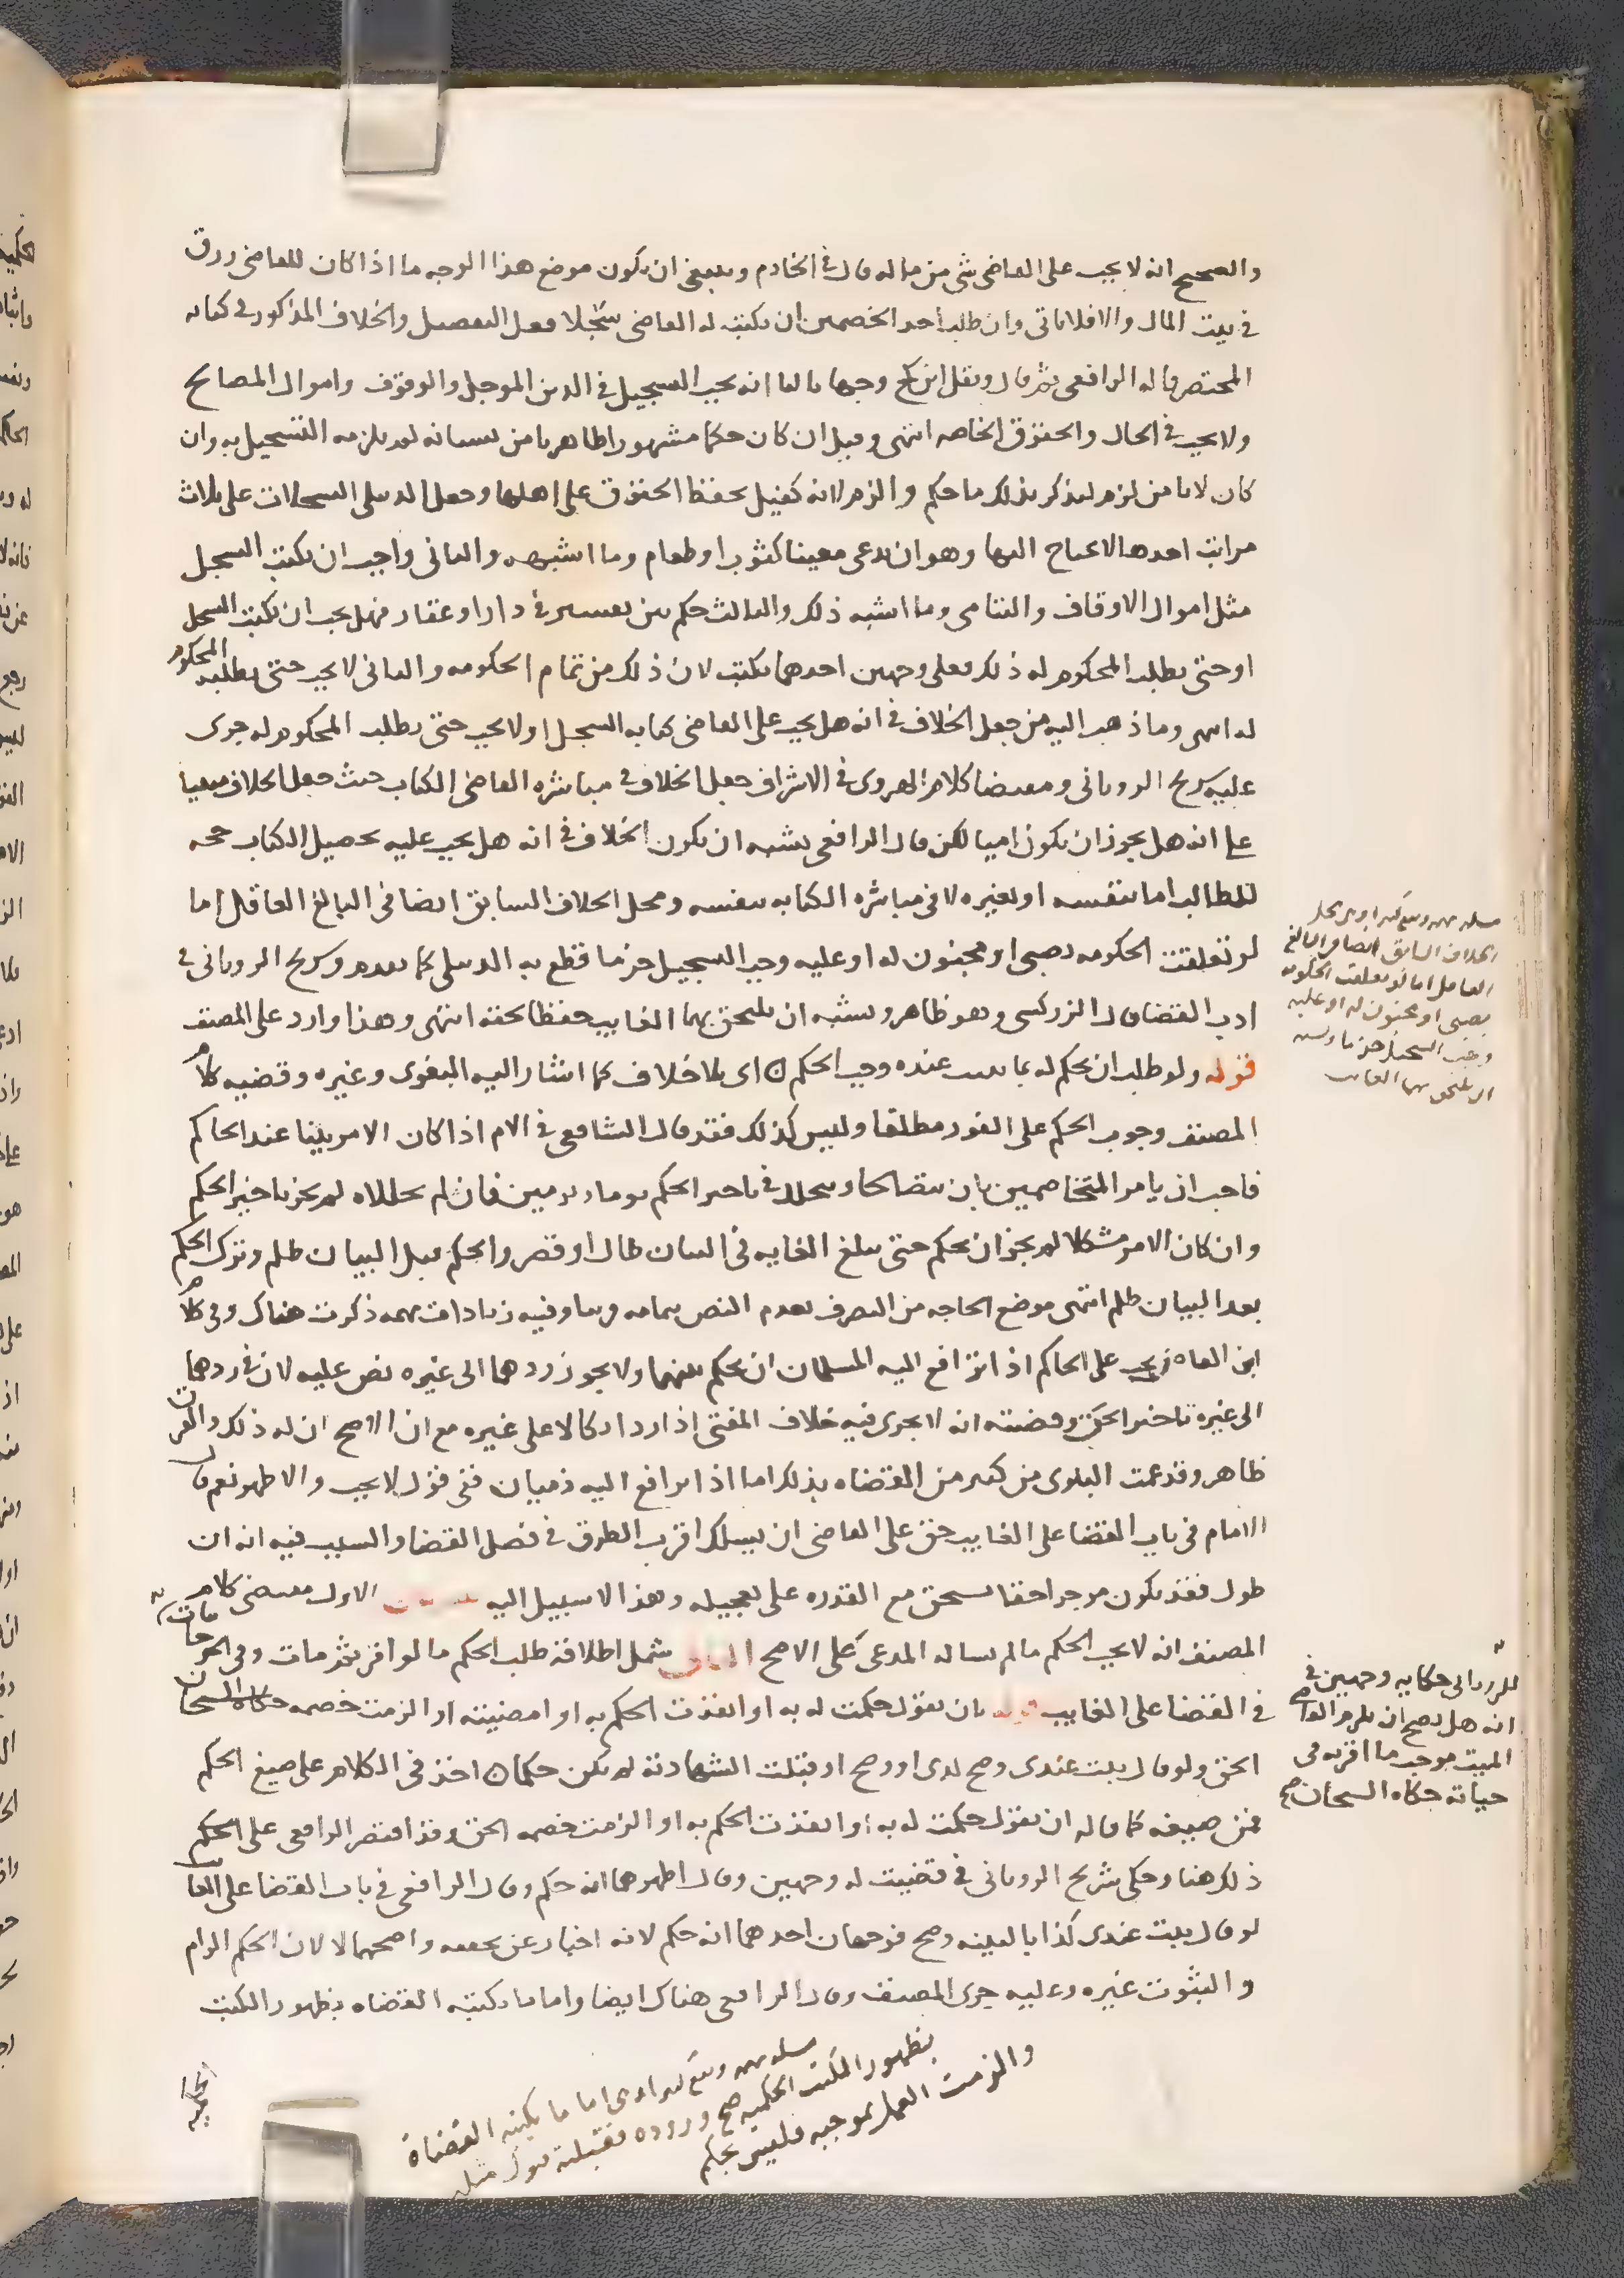 والصحيح انه لا يجب على القاضي شي من ماله قال في الخادم وينبغي ان يكون موضع هذا الوجه ما اذا كان للقاضي رزق
في بيت المال والا فلا ياتي وان طلب احد الخصمين ان يكتب له القاضي سجلا فعل التفصيل والخلاف المذكور في كتابه
المحتصر قاله الرافعي ثم قال ونقل ابن كج وجها ثالثا انه يجب التسجيل في الدين الموجل والوقوف واموال المصالح
ولا يجب في الحال والحقوق الخاصه انتهى وقيل ان كان حكما مشهورا ظاهرا يامن نسيانه لم يلزمه التسجيل به وان
كان لا يامن لزم ليذكر بذلك ما حكم والزم لانه كفيل بحفظ الحقوق على اهلها وجعل الدبيلي السجلات على ثلاث
مراتب احدها لا يحتاج اليها وهو ان يدعى معينا كثوب او طعام وما اشبهه والثاني واجب ان يكتب السجل
مثل اموال الاوقاف واليتامى وما اشبه ذلك والثالث حكم بين نفسين في دار او عقار فهل يجب ان يكتب السجل
او حتى يطلب المحكوم له ذلك فعلى وجهين احدهما يكتب لان ذلك من تمام الحكومه والثاني لا يجب حتى يطلبه المحكوم
له انتهى وما ذهب اليه من جعل الخلاف في انه هل يجب على القاضي كتابه السجل او لا يجب حتى يطلب المحكوم له جرى
عليه شريح الروياني ومقتضا كلام الهروي في الاشراف جعل الخلاف في مباشره القاضي الكتاب حيث جعل الخلاف مبنيا
على انه هل يجوز ان يكون اميا لكن قال الرافعي يشبه ان يكون الخلاف في انه هل يجب عليه تحصيل الكتاب حجه
للطالب اما بنفسه او بغيره لا في مباشره الكتابه بنفسه ومحل الخلاف السابق ايضا في البالغ العاقل اما
لو تعلقت الحكومه بصبي او مجنون له او عليه وجب التسجيل جزما قطع به الدبيلي كما تقدم وشريح الروياني في
ادب القضا قال الزركشي وهو ظاهر ويشبه ان يلتحق بهما الغايب حفظا لحقه انتهى وهذا وارد على المصنف
قوله ولو طلب ان يحكم له بما ثبت عنده وجب الحكم اي بلا خلاف كما اشار اليه البغوي وغيره وقضيه كلام
المصنف وجوب الحكم على الفور مطلقا وليس كذلك فقد قال الشافعي في الام اذا كان الامر بينا عند الحاكم
فاحب ان يامر المتخاصمين بان يتصالحا ويتحللا في تاخير الحكم يوما او يومين فان لم يحللاه لم يجز تاخير الحكم
وان كان الامر مشكلا لم يجز ان يحكم حتى يبلغ الغايه في البيان طال او قصر والحكم قبل البيان ظلم وترك الحكم
بعد البيان ظلم انتهى موضع الحاجه من التصرف تقدم النص بتمامه وفيه زيادات مهمه ذكرت هناك وفي كلام
ابن القاص يجب على الحاكم اذا ترافع اليه المسلمان ان يحكم بينهما ولا يجوز ردهما الى غيره نص عليه لان في ردهما
الى غيره تاخير الحق وقضيته انه لا يجري فيه خلاف المفتي اذا اراد اتكالا على غيره مع ان الاصح ان له ذلك والفرق
ظاهر وقد عمت البلوى من كثير من القضاه بذلك اما اذا ترافع اليه ذميان ففي قول لا يجب والاظهر نعم قال
الامام في باب القضا على الغايب حق على القاضي ان يسلك اقرب الطرق في فصل القضا والسبب فيه انه ان
طول فقد يكون موخرا حقا لمستحق مع القدره على تعجيله وهذا لا سبيل اليه الاول مقتضى كلام
المصنف انه لا يجب الحكم مالم يساله المدعي على الاصح الثاني شمل اطلاقه طلب الحكم ما لو اقر ثم مات
في القضا على الغايب قوله بان يقول حكمت له به او انفذت الحكم به او امضيته او الزمت خصمه
الحق ولو قال ثبت عندي وصح لدي او وضح او قبلت الشهادة لم يكن حكما اخذ في الكلام على صيغ الحكم
فمن صيغه كما قاله ان يقول حكمت له به او انفذت الحكم به او الزمت خصمه الحق وقد اقتصر الرافعي على الحكم
ذلك هنا وحكى شريح الروياني في قضيت له وجهين وقال اظهرهما انه حكم وقال الرافعي في باب القضا على الغايب
لو قال ثبت عندي كذا بالبينه وصح فوجهان احدهما انه حكم لانه اخبار عن تحققه واصحهما لا لان الحكم الزام
والثبوت غيره وعليه جرى المصنف وقال الرافعي هناك ايضا واما ما يكتبه القضاه بظهور الكتب
الحكميه
الخلاف السابق ايضا في البالغ
العاقل اما لو تعلقت الحكومه
بصبي او مجنون له او عليه
وجب التسجيل جزما
ان يلتحق بهما الغايب
للروياني حكايه وجهين في
انه هل يصح ان يلزم القاضي
الميت موجب ما اقر به في
حياته حكاه السبحان صح
اما ما يكتبه القضاة
بظهور الكتب الحكميه صح وروده فقبلته قبول مثله
والزمت العمل بموجبه فليس بحكم